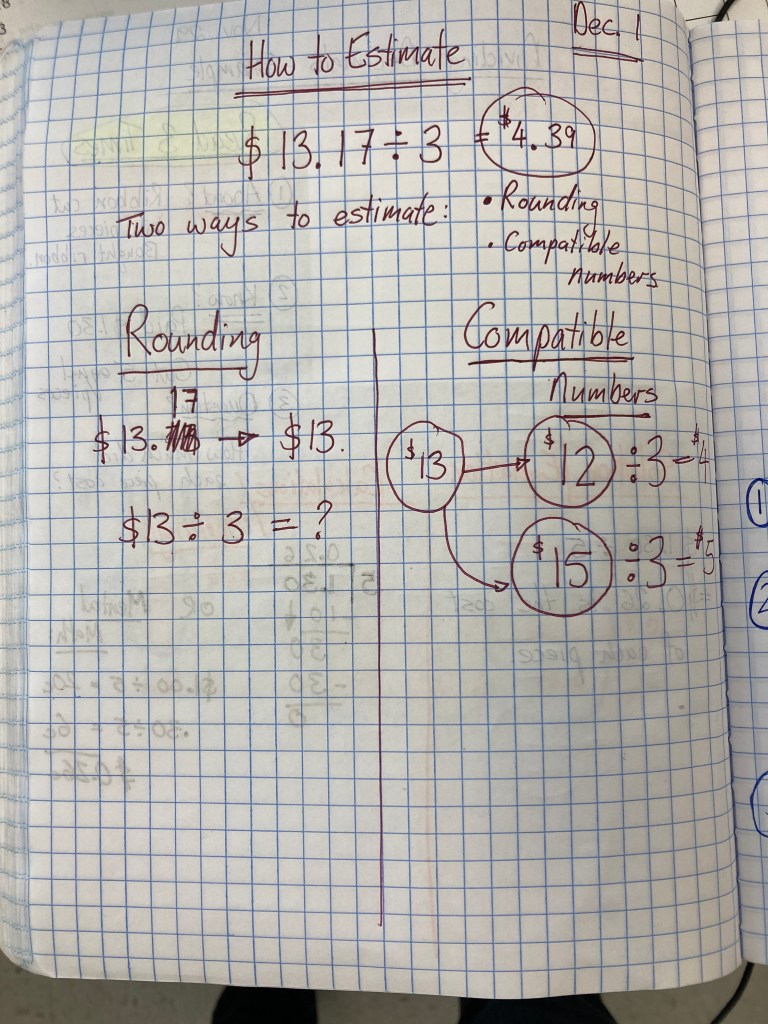 Dec. 1
How to Estimate
$ 13.17 ÷ 3 = $4.39
Two ways to estimate: • Rounding
• Compatible
numbers
Rounding
17
$13. → $13.
$13 ÷ 3 = ?
Compatible
Numbers
$13 → $12 ÷3 = $4
$15 ÷3 = $5
1
2